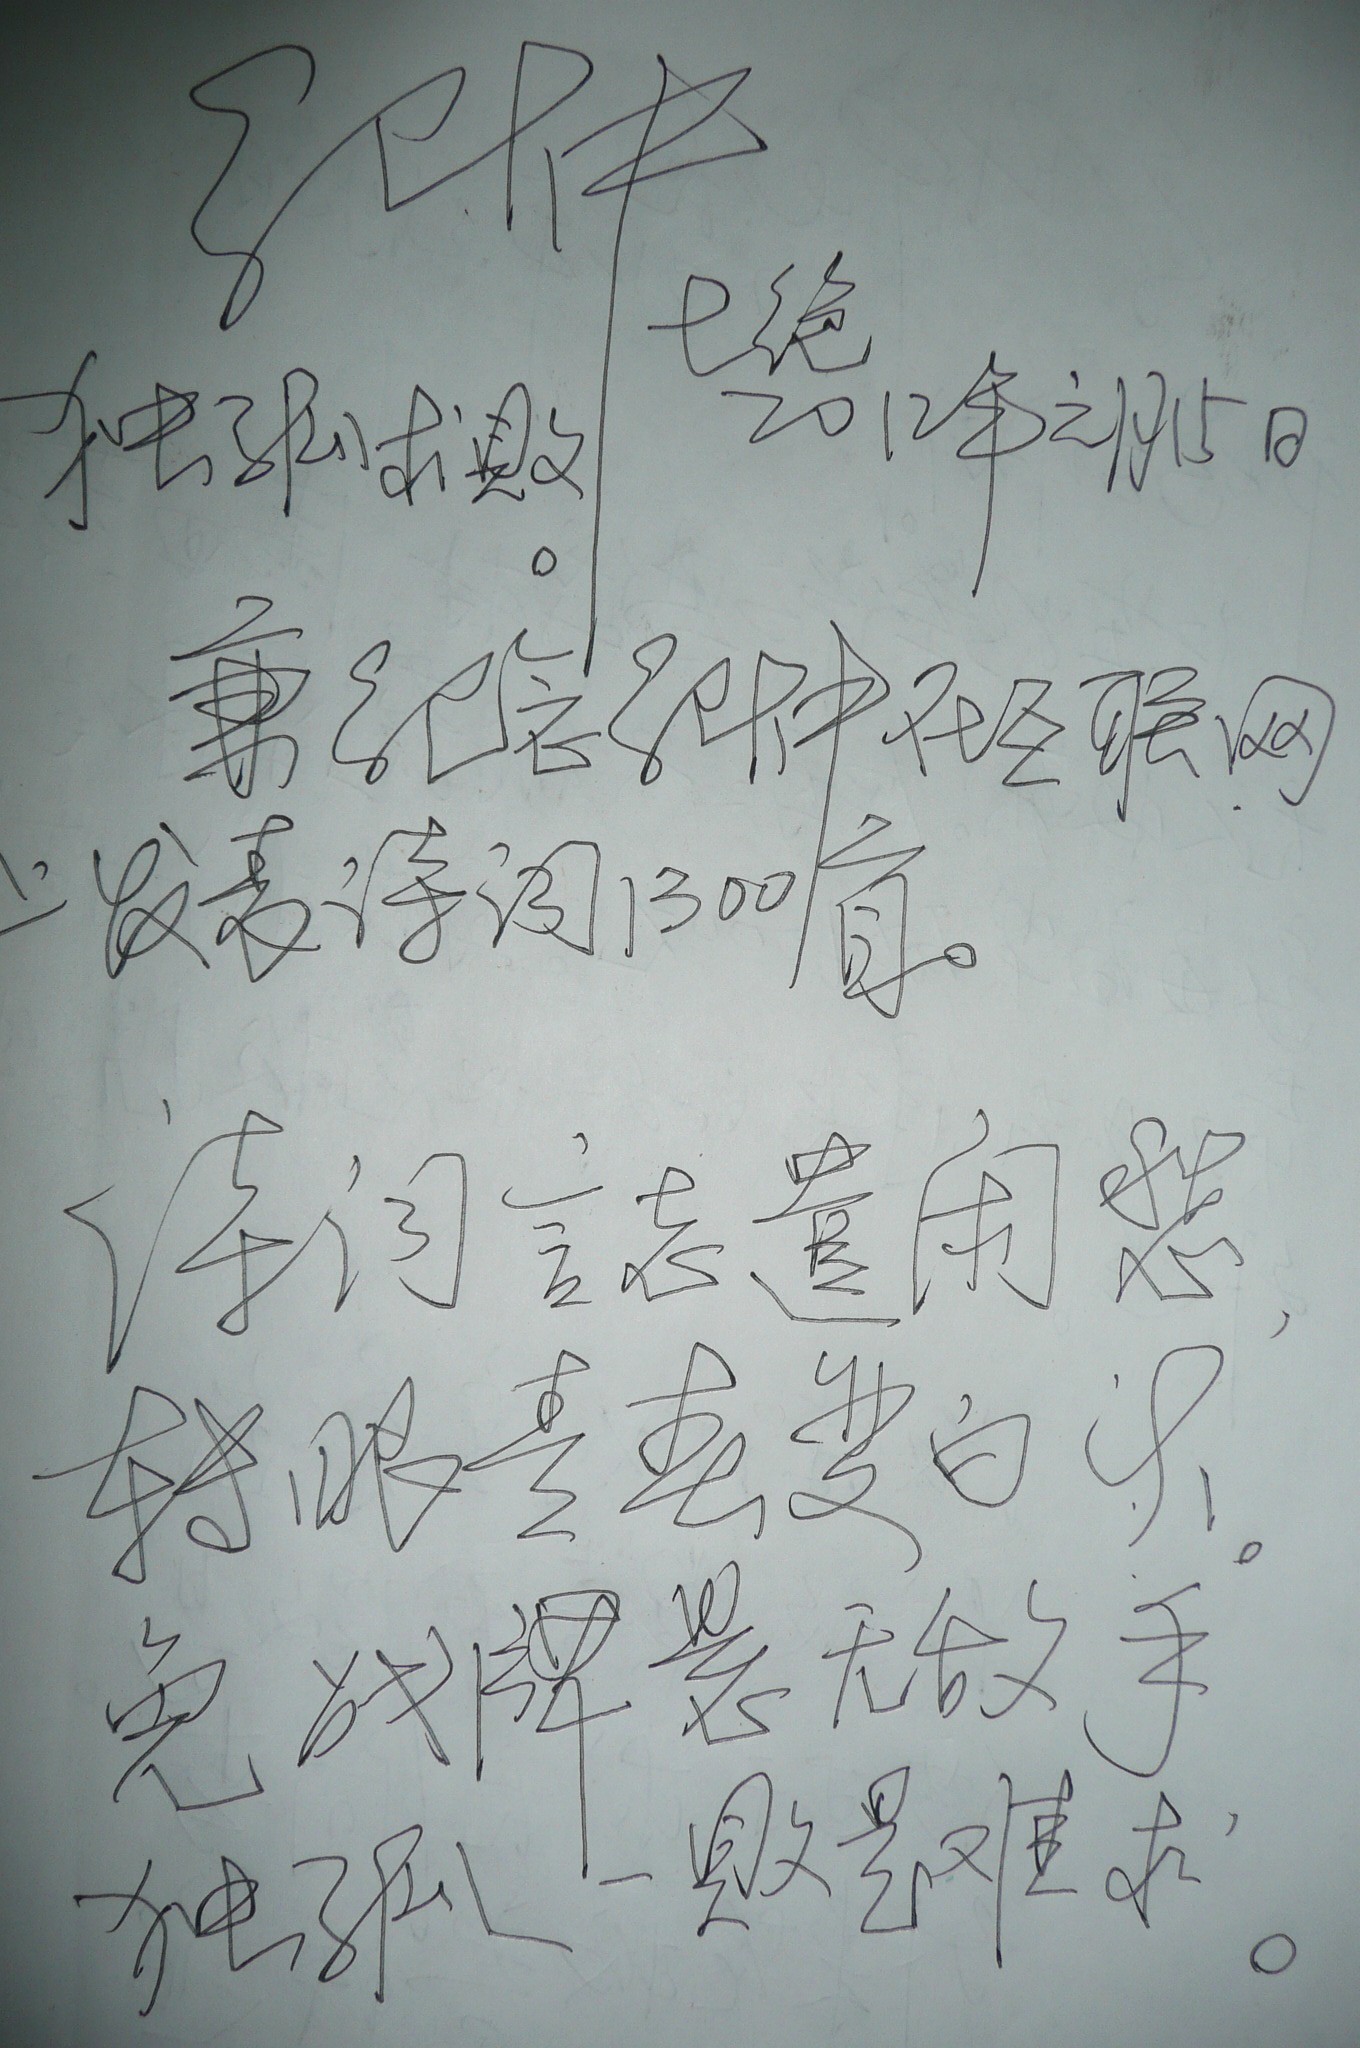 纪仲
七绝
独孤求败。
2012年元月15日
兼纪念纪仲在互联网
上发表诗词1300首。
诗词言志遣闲愁，
转眼青春变白头。
免战牌悬无敌手
独孤一败是难求。